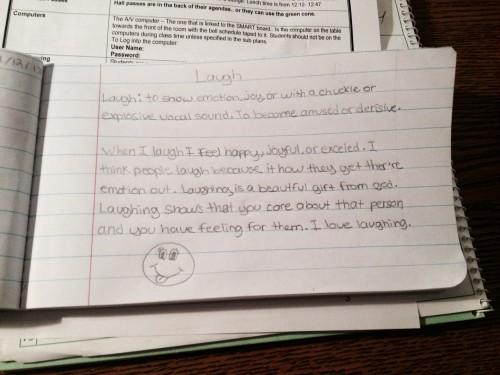 Hall passes are in the back of their agendas.. or they can use the green cone.
Computers
The A/V computer – The one that is linked to the SMART board. Is the computer on the table
towards the front of the room with the bell schedule taped to it. Students should not be on the
computers during class time unless specified in the sub plans.
To Log into the computer:
User Name:
Password:
Laugh
Laugh: to show emotion, joy, or with a chuckle or
explosive vocal sound. To become amused or derisive.
When I laugh I feel happy, joyful, or excied. I
think people laugh because it how they get ther're
emotion out. Laughing, is a beautiful gift from god.
Laughing shows that you care about that person
and you have feeling for them. I love laughing.